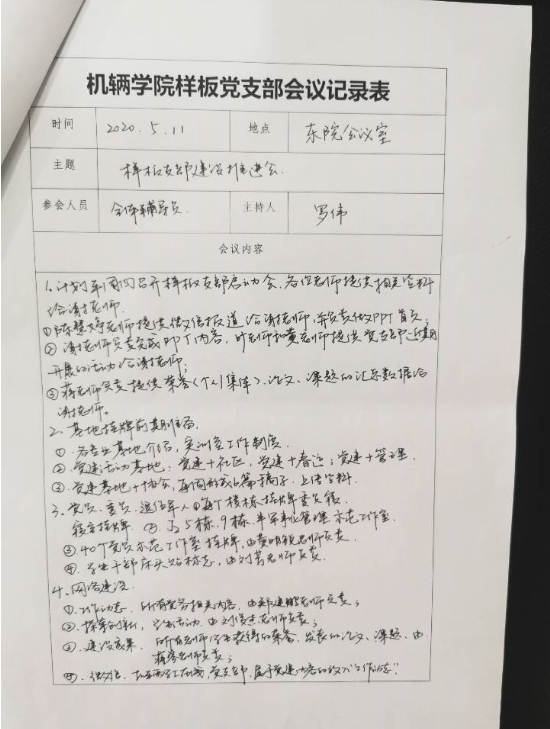 机辆学院样板党支部会议记录表
时间 2020.5.11 地点 东院会议室
主题 样板支部建设推进会
参会人员 全体辅导员 主持人 罗伟
会议内容
1.计划本周四召开样板支部启动会,各位老师提供相关资料
给谢老师.
①陈慧婷老师提供微信报道给谢老师,并负责做PPT首页;
②谢老师负责完成PPT内容,
开展的活动给谢老师;
③蒋老师负责提供荣誉(个人/集体)、论文、课题的汇总数据给
谢老师。
2.基地挂牌
①.各专业基地介绍,实训室工作制度.
②.党建活动基地:党建+社区,党建+春运;党建+管理.
③.党建基地+协会,每周形成6篇稿子,上传资料.
3.党员、委员、退伍军人①每个楼栋挂牌责任
挂牌. ②.5栋、9栋,半军事化管理示范工作室.
③40个党员示范工作室挂牌,由黄明锐老师负责.
④.学生干部床头贴标志,由刘芳老师负责.
4.网络建设
①.工作动态,所有党务相关内容,由老师负责;
②.探索创新,学生活动,由刘老师负责;
③.建设成果,所有老师/学生获得的荣誉,发表的论文、课题,由
蒋老师负责;
④.微信,党支部,属于党建内容的放入“工作动态”